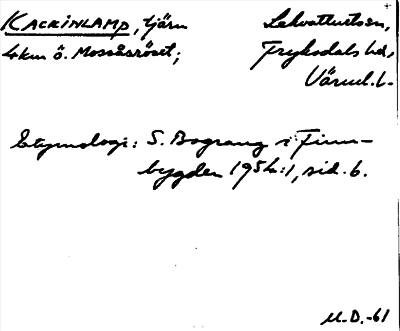 KACKINLAMP, tjärn
4 km ö. Mossåsröset;
Lekvattnets sn,
Fryksdals hd,
Värml. l.
Etymologi: S. Bograng i Finn-
bygden 1954:1, sid. 6.
M.D.-61